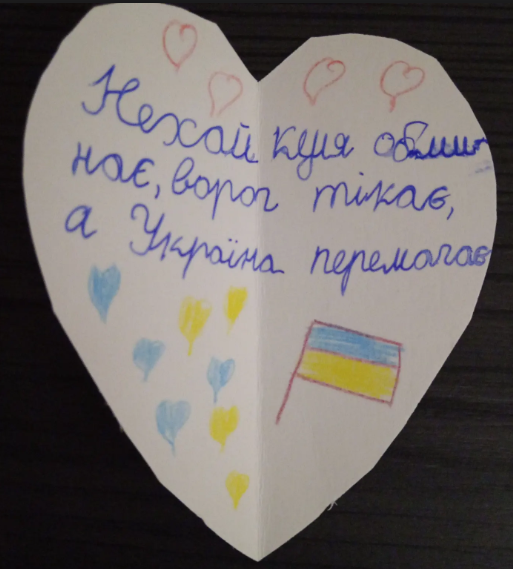 Нехай куля обмин
нає, ворог тікає,
а Україна перемагає